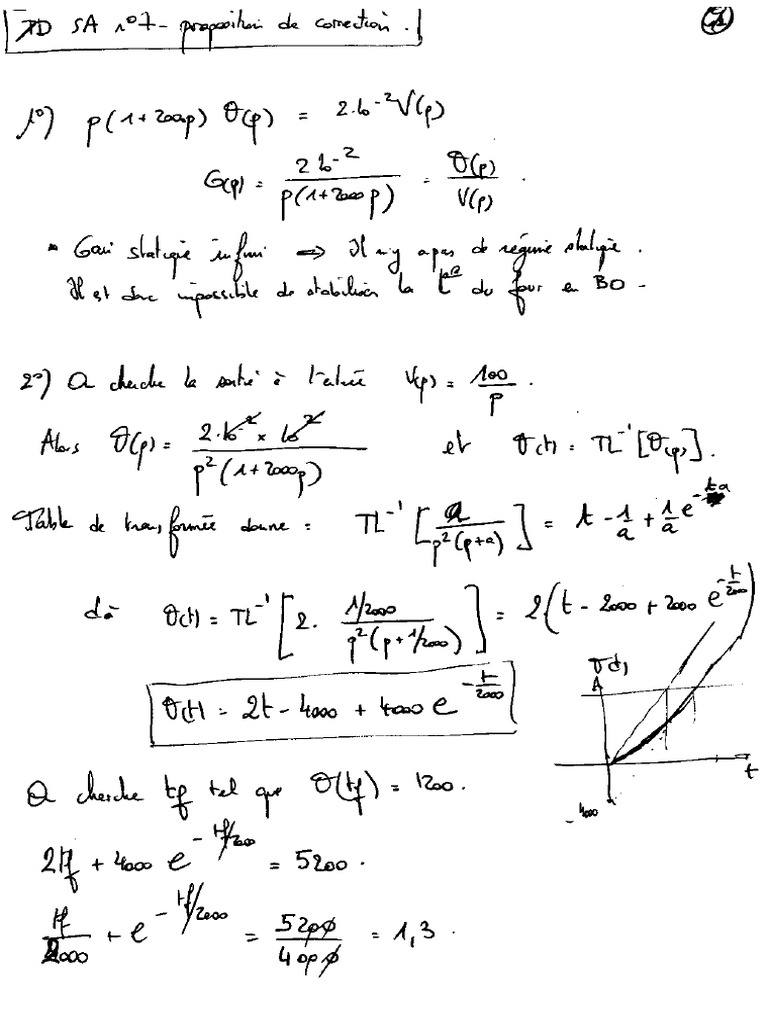 TD SA n°7 - proposition de correction.
1°) p(1+2000p) θ(p) = 2.10⁻² V(p)
G(p) = 2 10⁻² / p(1+2000p) = θ(p) / V(p) .
• Gain statique infini ⇒ Il n'y a pas de régime statique.
Il est donc impossible de stabiliser la t^re du four en BO -
2°) On cherche la sortie à l'entrée V(p) = 100 / p .
Alors θ(p) = 2.10⁻² × 10² / p²(1+2000p) et θ(t) = TL⁻¹[θ(p)].
Table de transformée donne : TL⁻¹[a / p²(p+a)] = t - 1/a + 1/a e^-ta
d'où θ(t) = TL⁻¹[2. 1/2000 / p²(p+1/2000)] = 2(t - 2000 + 2000 e^-t/2000
θ(t) = 2t - 4000 + 4000 e^-t/2000
θ(t)
t
-4000
On cherche tf tel que θ(tf) = 1200.
2tf + 4000 e^-tf/200 = 5200.
tf/2000 + e^-tf/2000 = 5200/4000 = 1,3.